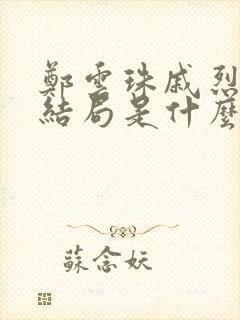 鄭雲珠戚烈
結局是什麼
蘇念妖